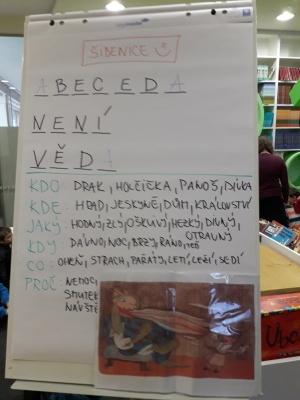 ŠIBENICE
ABECEDA
NENÍ
VĚDA
KDO: DRAK, HOLČIČKA, PANOŠ, DÍVKA
KDE: HRAD, JESKYNĚ, DŮM, KRÁLOVSTVÍ
JAKÝ: HODNÝ, ZLÝ, OŠKLIVÝ, HEZKÝ, DIVNÝ,
OTRAVNÝ
KDY: DÁVNO, NOC, BRZY, RÁNO, TEĎ
CO: OHEŇ, STRACH, PAŘÁTY, LETÍ, LEŽÍ, SEDÍ
PROČ: NEMOC,
SMUTEK
NÁVŠTĚ